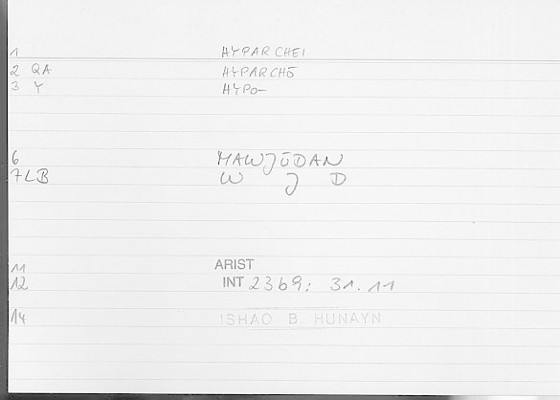 1 HYPARCHEI
2 QA HYPARCHŌ
3 Y HYPO-
6 MAWJŪDAN
7LB W J D
11 ARIST
12 INT 23b9: 31.11
14 ISHAO B. HUNAYN